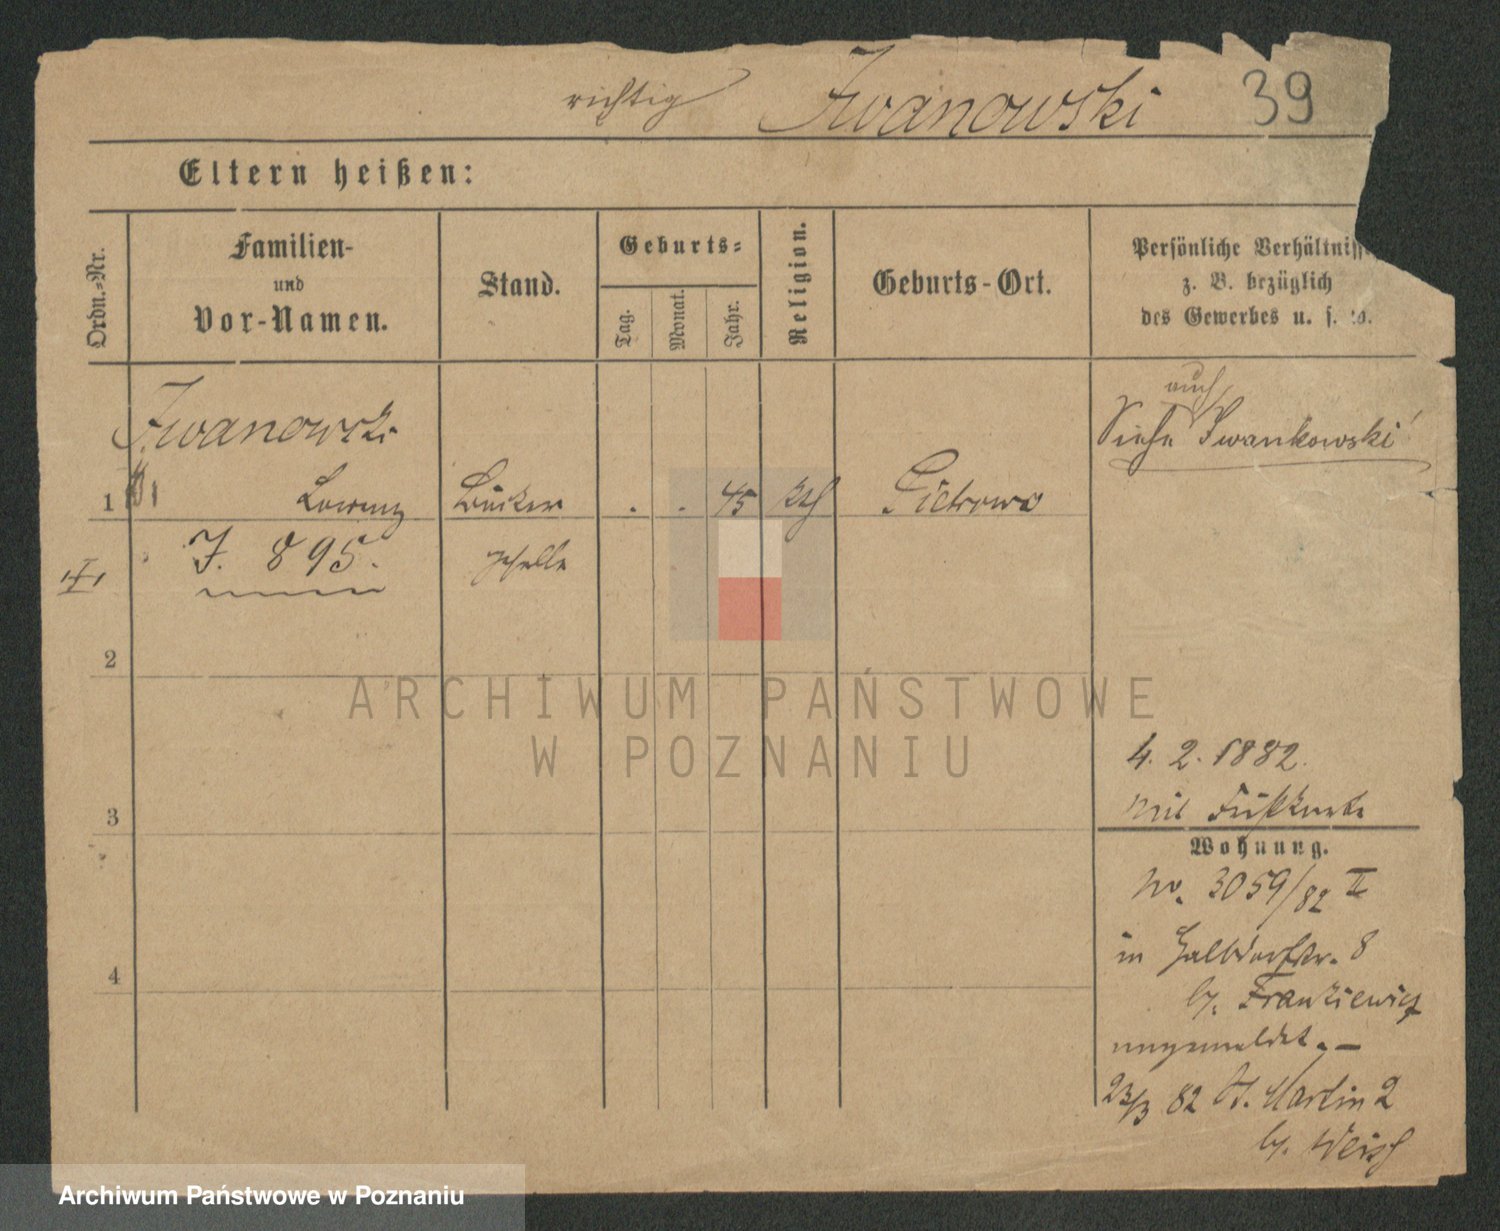 richtig Iwanowski 39
Eltern heißen:
Ordn.-Nr.
Familien-
und
Vor-Namen.
Stand.
Geburts-
Tag.
Monat.
Jahr.
Religion.
Geburts-Ort.
Persönliche Verhältnisse
z. B. bezüglich
des Gewerbes u. s. w.
Iwanowski
auch
Siehe Iwankowski
1 Lorenz Bäcker . . 45 kth Pietrowo
J. 895. geselle
2
3
4
4. 2. 1882.
mit Fußkarte
Wohnung.
No. 3059/82 II
in Halbdorfstr. 8
b/. Frankiewicz
angemeldet. –
23/3 82 St. Martin 2
b/. Weiss
ARCHIWUM PAŃSTWOWE
W POZNANIU
Archiwum Państwowe w Poznaniu